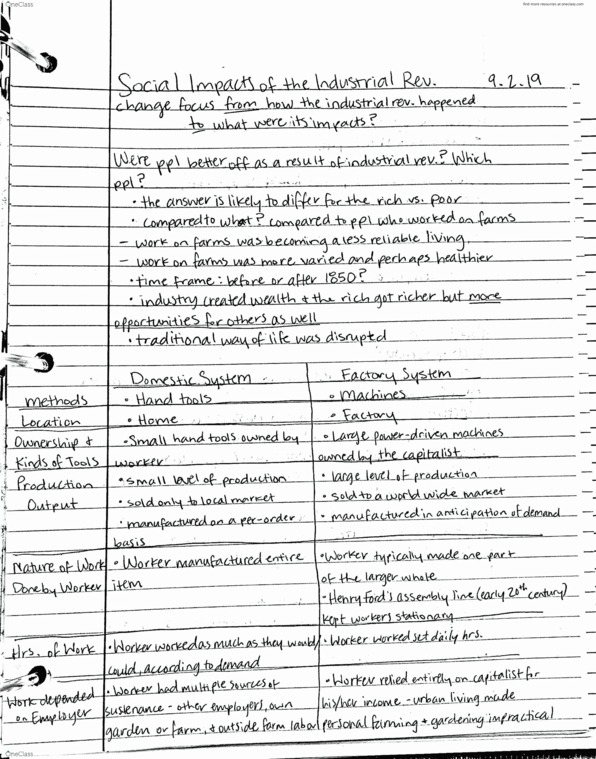 OneClass
find more resources at oneclass.com
Social Impacts of the Industrial Rev. 9.2.19
change focus from how the industrial rev. happened
to what were its impacts?
Were ppl better off as a result of industrial rev.? Which
ppl?
• the answer is likely to differ for the rich vs. poor
• compared to what? compared to ppl who worked on farms
– work on farms was becoming a less reliable living
– work on farms was more varied and perhaps healthier
• time frame: before or after 1850?
• industry created wealth & the rich got richer but more
opportunities for others as well
• traditional way of life was disrupted
Domestic System Factory System
methods • Hand tools • Machines
Location • Home • Factory
Ownership & • Small hand tools owned by • Large power-driven machines
Kinds of Tools worker owned by the capitalist
Production • small level of production • large level of production
Output • sold only to local market • sold to a world wide market
• manufactured on a per-order • manufactured in anticipation of demand
basis
Nature of Work • Worker manufactured entire • Worker typically made one part
Done by Worker item of the larger whole
• Henry Ford's assembly line (early 20th century)
kept workers stationary
Hrs. of Work • Worker worked as much as they would/ • Worker worked set daily hrs.
could, according to demand
Work depended • Worker had multiple sources of • Worker relied entirely on capitalist for
on Employer sustenance - other employers, own his/her income. - urban living made
garden or farm, & outside farm labor personal farming & gardening impractical
OneClass